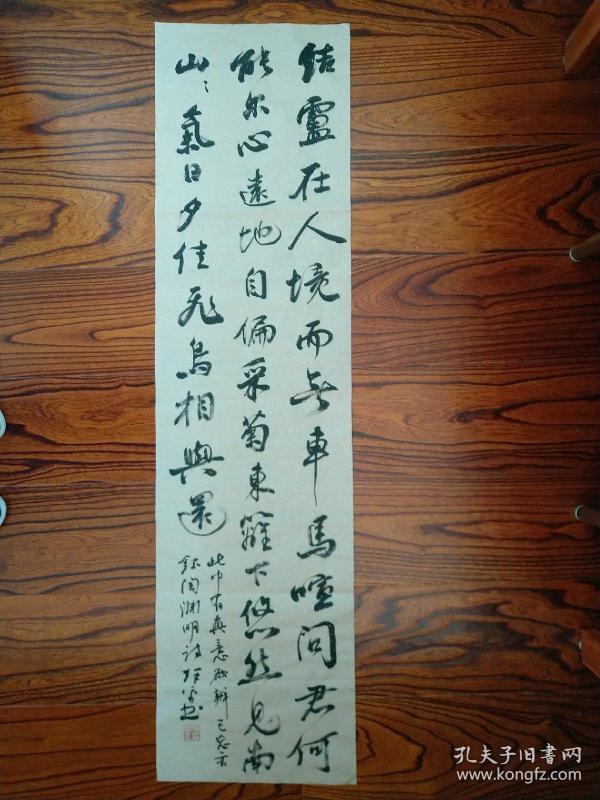 结廬在人境而無車馬喧问君何
能尔心遠地自偏采菊東籬下悠然见南
山山氣日夕佳飛鸟相與還
此中有真意欲辨已忘言
錄陶渊明诗
孔夫子旧書网
www.kongfz.com